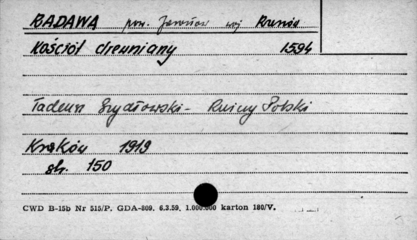 BADAWA pow. Jarosław woj. Rzesz.
Kościół drewniany 1594
Tadeusz Szydłowski - Ruiny Polski
Kraków 1919
str. 150
CWD B-15b Nr 515/P. GDA-809, 6.3.59, 1.000.000 karton 180/V.